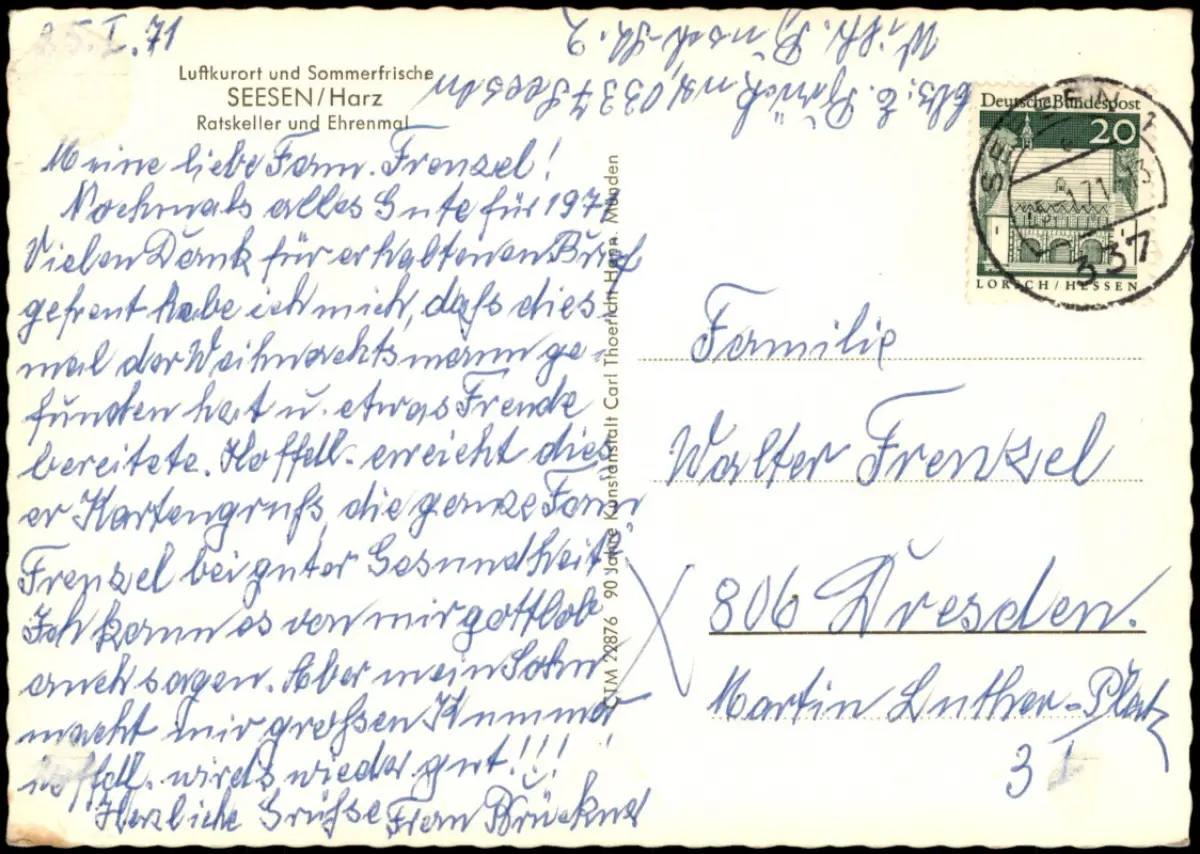 25.I.71
Luftkurort und Sommerfrische
SEESEN/Harz
Ratskeller und Ehrenmal
Meine liebe Fam. Frenzel!
Nochmals alles Gute für 1971
Vielen Dank für erhaltenen Brief
gefreut habe ich mich, dafs dies-
mal der Weihnachtsmann ge-
funden hat u. etwas Freude
bereitete. Hoffetl. erreicht dies
er Kartengrufs, die ganze Fam
Frenzel bei guter Gesundheit
Ich kann es von mir gottlob
auch sagen. Aber mein Sohn
macht mir grofsen Kummer
hoffetl. wirds wieder gut!!!
Herzliche Grüfse Frau Brückner
CTM 22876 90 Jahre Kunstanstalt Carl Thoericht Hann. Münden
Abs. E. Brückner, 337 Seesen
Wilh. Busch-Str. 2
Deutsche Bundespost
20
LORSCH/HESSEN
SEESEN 1
1.71.13
337
Familie
Walter Frenzel
806 Dresden.
Martin Luther-Platz
3